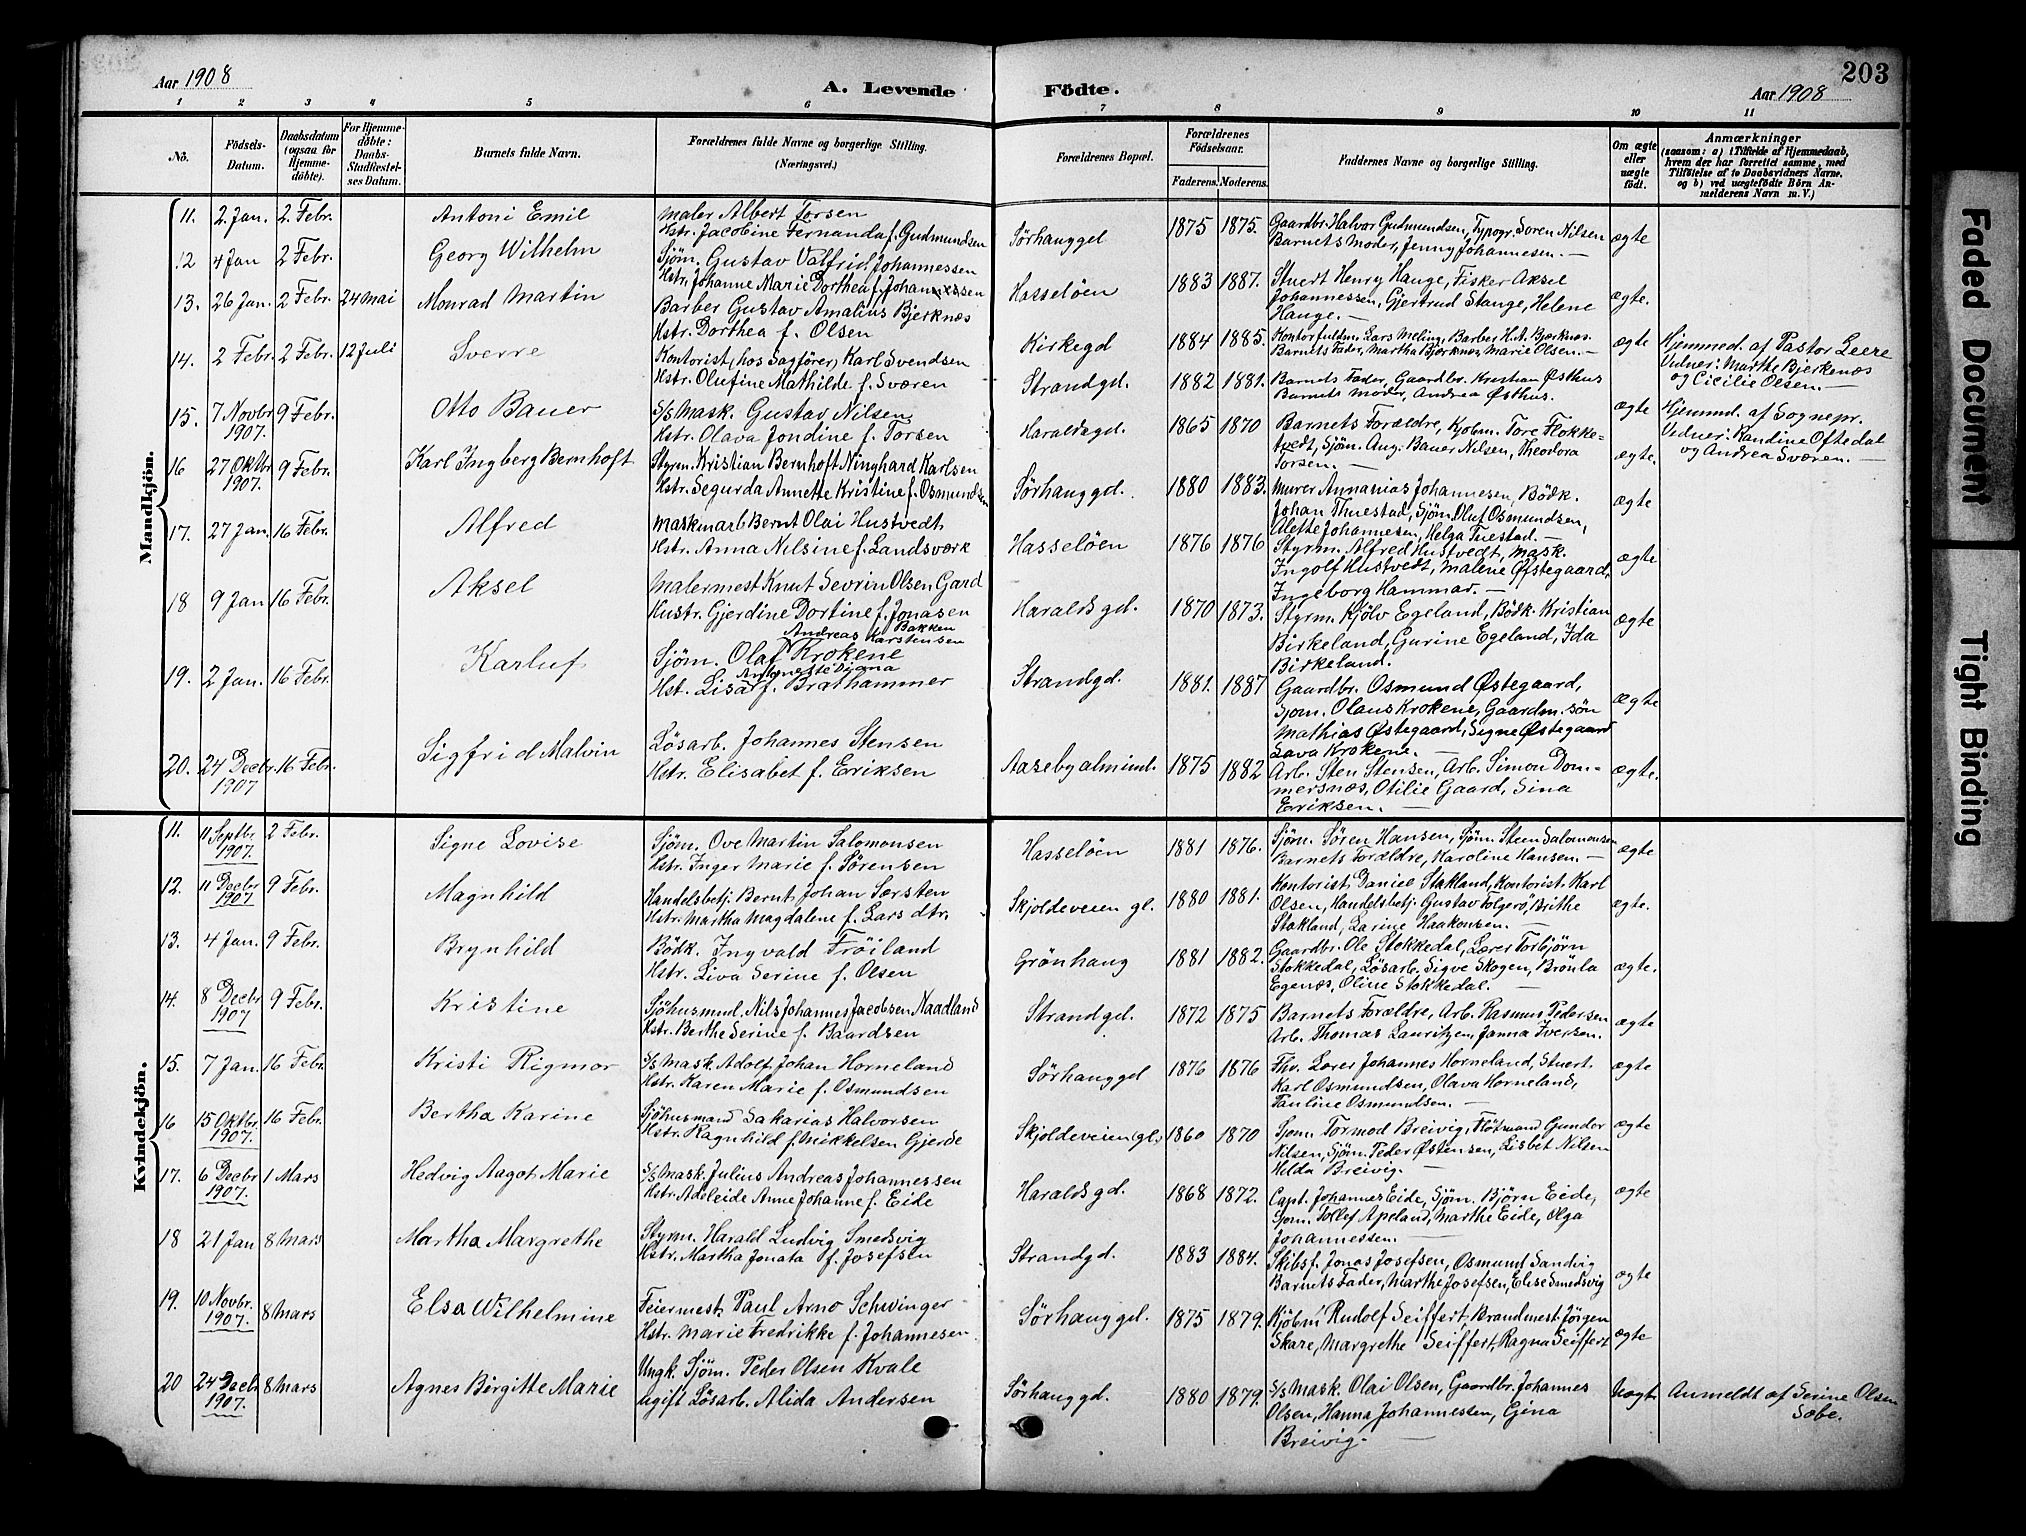 203
Aar 1908
A. Levende Födte.
Aar 1908
1 2 3 4 5 6 7 8 9 10 11
No.
Födsels-Datum.
Daabsdatum (ogsaa för Hjemme-döbte).
For Hjemme-döbte: Daabs-Stadfæstel-ses Datum.
Barnets fulde Navn.
Forældrenes fulde Navne og borgerlige Stilling. (Næringsvei.)
Forældrenes Bopæl.
Forældrenes Födselsaar.
Faderens. Moderens.
Faddernes Navne og borgerlige Stilling.
Om ægte eller uægte födt.
Anmærkninger
(saasom: a) i Tilfælde af Hjemmedaab, hvem der har forrettet samme, med Tilföielse af to Daabsvidners Navne, og b) ved uægtefödte Börn An-melderens Navn m. V.)
Mandkjön.
11. 2 Jan. 2 Febr. Antoni Emil
Maler Albert Torsen
Hstr. Jacobine Fernanda f. Gudmundsen
Sörhauggd 1875 1875.
Gaardbr. Halvor Gudmundsen, Typogr. Soren Nilsen
Barnets Moder, Jenny Johannesen. —
ægte
12 4 Jan 2 Febr. Georg Wilhelm
Sjöm. Gustav Valfrid Johannessen
Hstr. Johanne Marie Dorthea f. Johannessen
Hasselöen 1883 1887.
Stuert Henry Hauge, Fisker Aksel
Johannessen, Gjertrud Stange, Helene
Hauge. —
ægte.
13. 26 Jan. 2 Febr. 24 Mai Monrad Martin
Barber Gustav Amalius Bjerknæs
Hstr. Dorthea f. Olsen
Kirkegd 1884 1885.
Kontorfuldm. Lars Meling, Barber H.A. Bjerknæs
Barnets Fader, Martha Bjerknæs, Marie Olsen. —
ægte
Hjemmed. af Pastor Leere
Vidner: Marthe Bjerkenæs
og Cicilie Olsen. —
14. 2 Febr. 2 Febr. 12 Juli Sverre
Kontorist (hos Sagförer) Karl Svendsen
Hstr. Olufine Mathilde f. Sværen
Strandgd. 1882 1881.
Barnets Fader, Gaardbr. Kristian Østhus
Barnets Moder, Andrea Østhus.
ægte
Hjemmd. af Sognepr.
Vidner: Randine Oftedal
og Andrea Sværen. —
15. 7 Novbr 1907. 9 Febr. Otto Bauer
S/S Mask. Gustav Nilsen
Hstr. Olava Jondine f. Torsen
Haraldsgd. 1865 1870
Barnets Forældre, Kjöbm. Tore Flokke-
tvedt, Sjöm. Aug. Bauer Nilsen, Theodora
Torsen. —
ægte.
16 27 Oktbr 1907. 9 Febr. Karl Ingberg Bernhoft
Styrm. Kristian Bernhoft Ninghard Karlsen
Hstr. Segurda Annette Kristine f. Osmundsen
Sörhauggd. 1880 1883.
Murer Annanias Johannesen, Bödk.
Johan Thuestad, Sjöm. Oluf Osmundsen,
Alette Johannesen, Helga Tuestad. —
ægte
17. 27 Jan. 16 Febr. Alfred
Maskinarb Bernt Olai Hustvedt
Hstr. Anna Nilsine f. Landsværk
Hasselöen 1876 1876
Styrm. Alfred Hustvedt, Mask.
Ingolf Hustvedt, Malene Østegaard,
Ingeborg Hammar. —
ægte
18 9 Jan 16 Febr. Aksel
Malermest Knut Sevrin Olsen Gard
Hustr. Gjerdine Dortine f. Jonasen
Haraldsgd. 1870 1873.
Styrm. Kjölv Egeland, Bödk. Kristian
Birkeland, Gurine Egeland, Ida
Birkeland.
ægte
19. 2 Jan. 16 Febr. Karluf
Bakken
Andreas Karstensen
Sjöm. Olaf Krokene
Antonette Diana
Hst. Lisa f. Brathammer
Strandgd. 1881. 1887
Gaardbr. Osmund Østegaard,
Sjom. Olaus Krokene, Gaardm. sön
Mathias Østegaard, Signe Østegaard
Lava Krokene. —
ægte
20. 24 Decbr. 1907 16 Febr. Sigfrid Malvin
Lösarb. Johannes Stensen
Hstr. Elisabet f. Eriksen
Aasebyalmind. 1875 1882
Arb. Sten Stensen, Arb. Simon Dom-
mersnæs, Otilie Gaard, Sina
Eriksen. —
ægte.
Kvindekjön.
11. 11 Septbr 1907. 2 Febr. Signe Lovise
Sjöm. Ove Martin Salomonsen
Hstr. Inger Marie f. Sörensen
Hasselöen 1881 1876.
Sjöm. Sören Hansen, Sjöm. Steen Salomonsen
Barnets Forældre, Karoline Hansen. —
ægte
12. 11 Decbr 1907. 9 Febr. Magnhild
Handelsbetj. Bernt Johan Særsten
Hstr. Martha Magdalene f. Lars dtr.
Skjoldeveien gl. 1880 1881.
Kontorist Daniel Stakland, Kontorist Karl
Olsen, Handelsbetj. Gustav Folgerö, Brithe
Stakland, Larine Haakonsen. —
ægte.
13. 4 Jan. 9 Febr. Brynhild
Bödk. Ingvald Fröiland
Hstr. Liva Serine f. Olsen
Grönhaug 1881 1882.
Gaardbr. Ole Stokkedal, Lærer Torbjörn
Stokkedal, Lösarb. Sigve Skogen, Brönla
Egenæs, Oline Stokkedal. —
ægte.
14. 8 Decbr 1907 9 Febr. Kristine
Sjöhusmnd. Nils Johannes Jacobsen Naadland
Hstr. Berthe Serine f. Baardsen
Strandgd. 1872 1875
Barnets Forældre, Arb. Rasmus Pedersen
Arb. Thomas Lauritzen, Janna Iversen.
ægte
15. 7 Jan. 16 Febr. Kristi Rigmor
S/S Mask. Adolf Johan Horneland
Hstr. Karen Marie f. Osmundsen
Sörhauggd 1876 1876
Fhv. Lærer Johannes Horneland, Stuert
Karl Osmundsen, Olava Horneland,
Pauline Osmundsen. —
ægte
16 15 Oktbr. 1907. 16 Febr. Bertha Karine
Sjöhusmand Sakarias Halvorsen
Hstr. Ragnhild f. Mikkelsen Gjerde
Skjoldeveien (gl.) 1860 1870
Sjom. Tormod Breivig, Flötmand Gunder
Nilsen, Sjöm. Peder Østensen, Lisbet Nilsen
Hilda Breivig. —
ægte
17. 6 Decbr 1907. 1 Mars Hedvig Aagot Marie
S/S Mask. Julius Andreas Johannessen
Hstr. Adeleide Anne Johanne f. Eide
Haraldsgd. 1868 1872.
Capt. Johannes Eide, Sjöm. Björn Eide,
Sjom. Tollef Apeland, Marthe Eide, Olga
Johannessen. —
ægte
18 21 Jan 8 Mars Martha Margrethe
Styrm. Harald Ludvig Smedsvig
Hstr. Martha Jonata f. Josefsen
Strandgd. 1883 1884.
Skibsf. Jonas Josefsen, Osmund Sandvig
Barnets Fader, Marthe Josefsen, Elise Smedsvig
ægte
19. 10 Novbr. 1907. 8 Mars Elsa Wilhelmine
Feiermest. Paul Arno Schwinger
Hstr. Marie Fredrikke f. Johannesen
Sörhauggd. 1875 1879.
Kjöbm Rudolf Seiffert, Brandmest. Jörgen
Skare, Margrethe Seiffert, Ragna Seiffert
ægte
20 24 Decbr 1907. 8 Mars Agnes Birgitte Marie
Ungk. Sjöm. Peder Olsen Kvale
ugift Lösarb. Alida Andersen
Sörhauggd. 1880 1879.
S/S Mask. Olai Olsen, Gaardbr. Johannes
Olsen, Hanna Johannessen, Gina
Breivig. —
Uægt.
Anmeldt af Serine Olsen
Sæbe.
Faded Document
Tight Binding